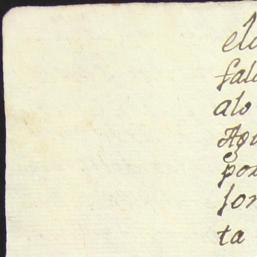 ela
fal
alo
Agu
por
for
ta